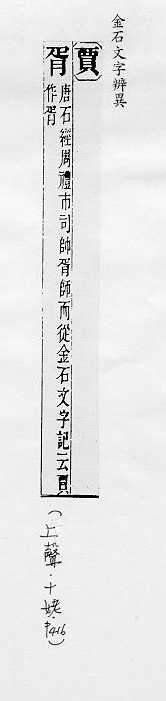 金石文字辨異
賈
胥
唐石經周禮市司帥胥師而從金石文字記云賈
作胥
(上聲·十姥·P416)